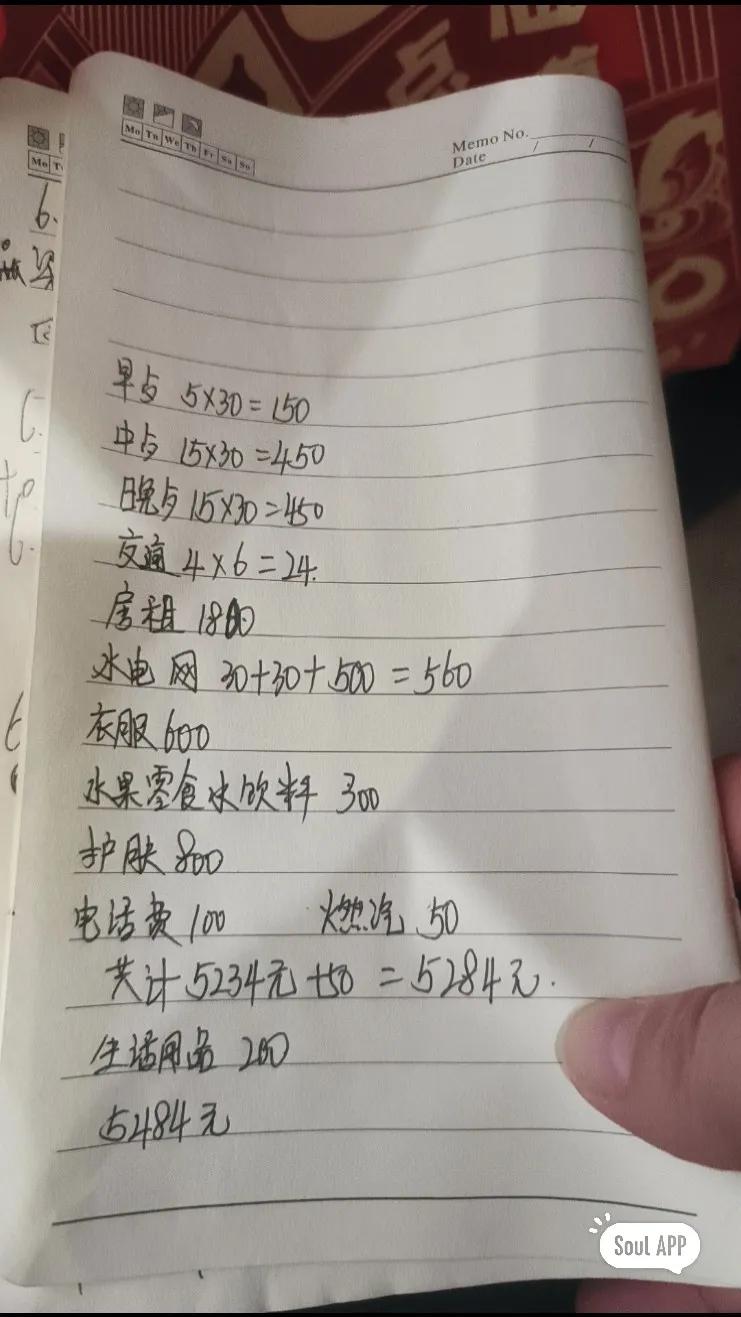 Mo Tu We Th Fr Sa Su
Memo No.
Date / /
早点 5×30=150
中点 15×30=450
晚点 15×30=450
交通 4×6=24.
房租 1800
水电网 30+30+500=560
衣服600
水果零食水饮料 300
护肤 800
电话费 100 燃汽 50
共计5234元+50=5284元.
生活用品 200
5484元
Mo
6.
点
Soul APP